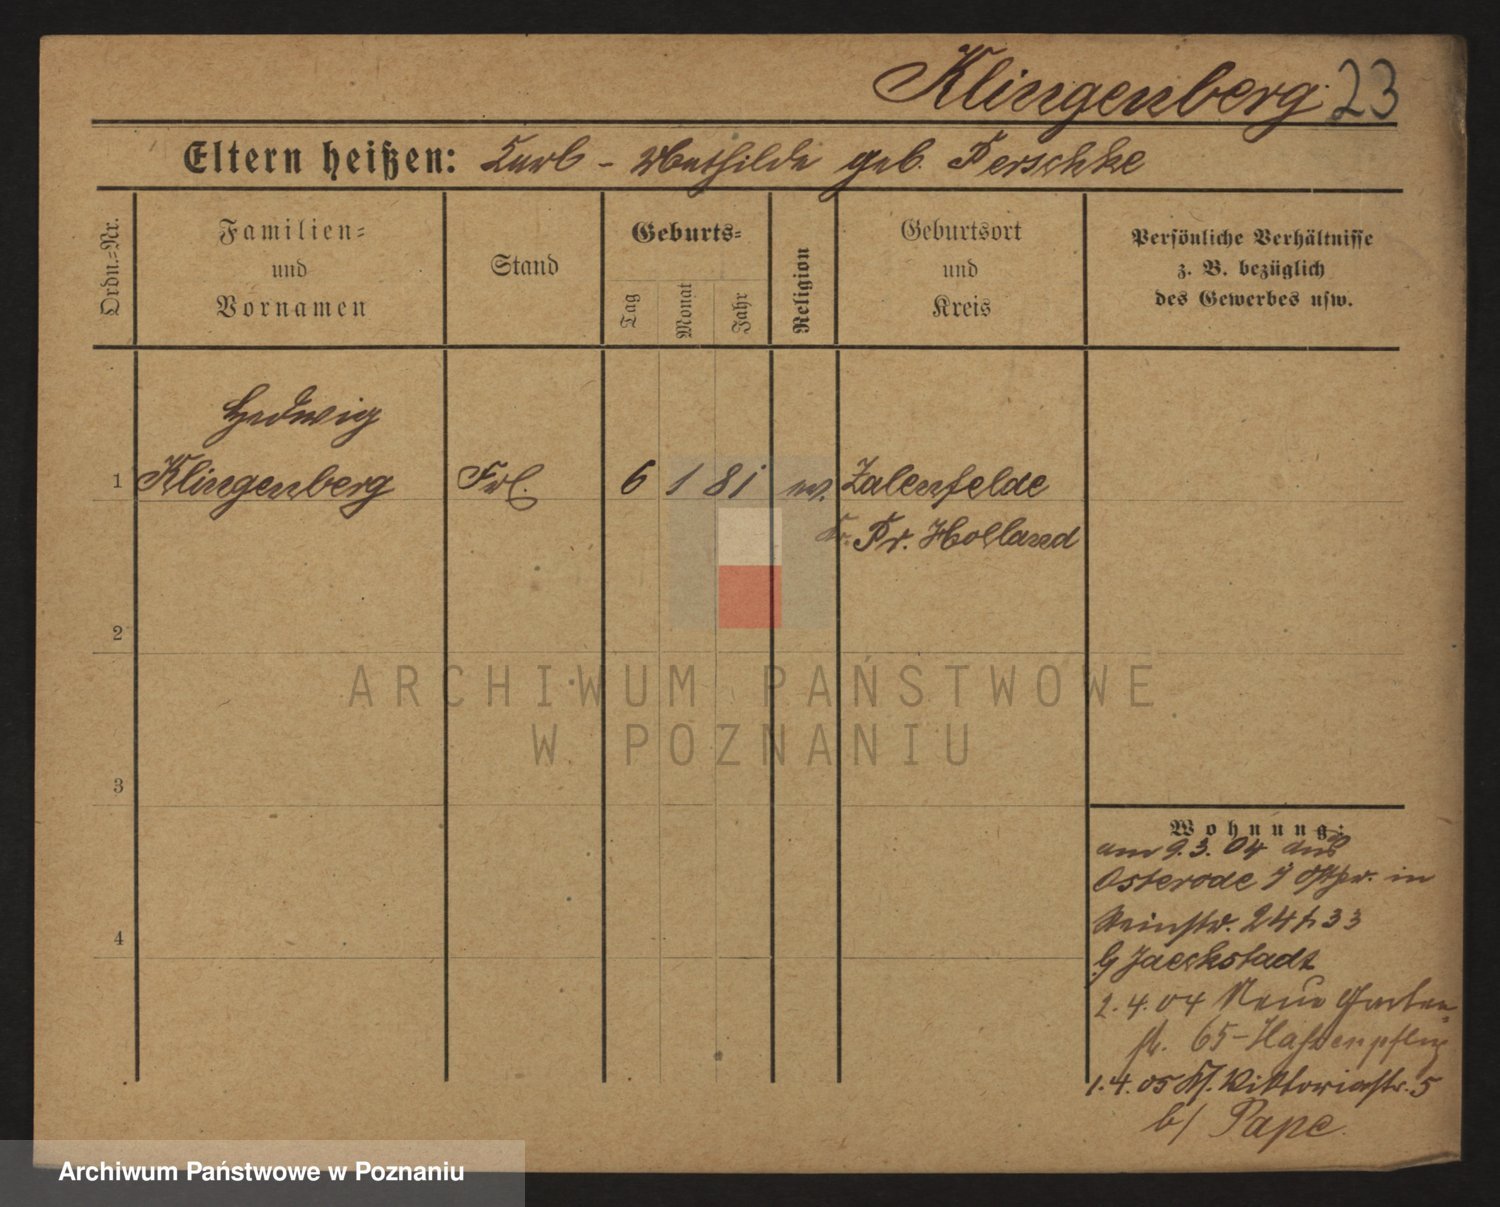 Klingenberg 23
Eltern heißen: Karl - Mathilde geb. Perschke
Ordn.=Nr.
Familien=
und
Vornamen
Stand
Geburts=
Tag
Monat
Jahr
Religion
Geburtsort
und
Kreis
Persönliche Verhältnisse
z. B. bezüglich
des Gewerbes usw.
Hedwig
1 Klingenberg Frl. 6 1 81 Zalenfelde
Kr. Pr. Holland
2
3
4
Wohnung:
am 9.3.04 aus
Osterode Ostpr. in
24 33
Jaeckstadt
2.4.04 Neue Garten=
str. 65 - Hassenpflug
1.4.05 Kl. Viktoriastr. 5
b/ Pape.
ARCHIWUM PAŃSTWOWE
W POZNANIU
Archiwum Państwowe w Poznaniu